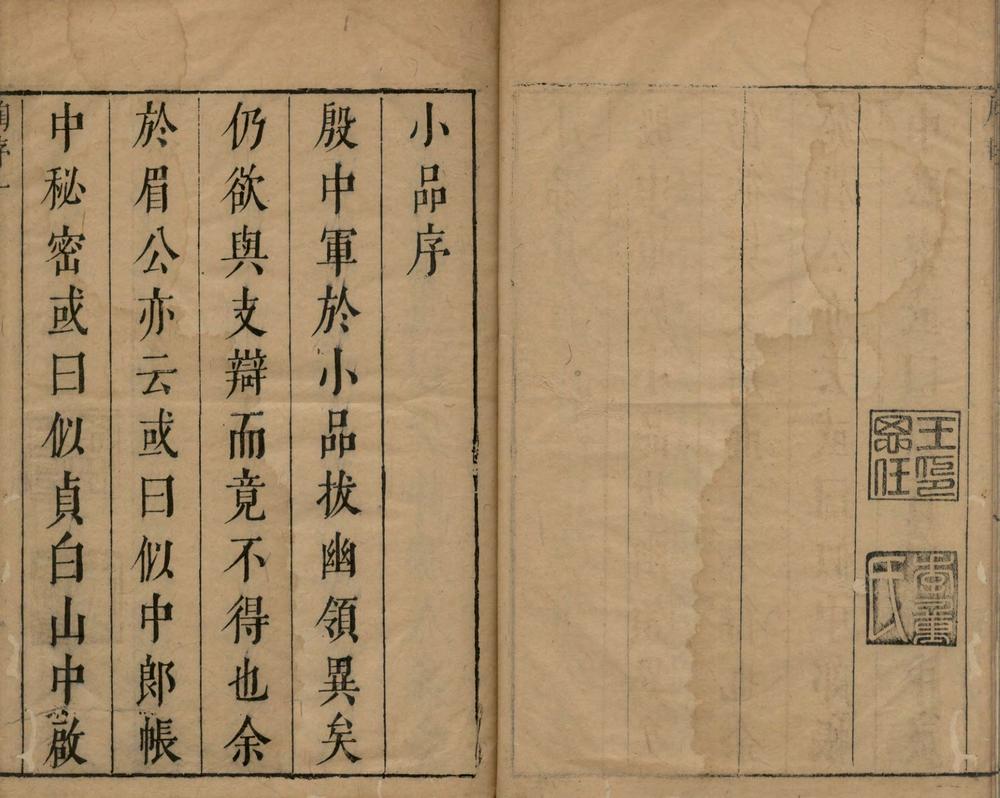 王思任印
小品序
殷中軍於小品拔幽領異矣
仍欲與支辯而竟不得也余
於眉公亦云或曰似中郎帳
中秘密或曰似貞白山中啟